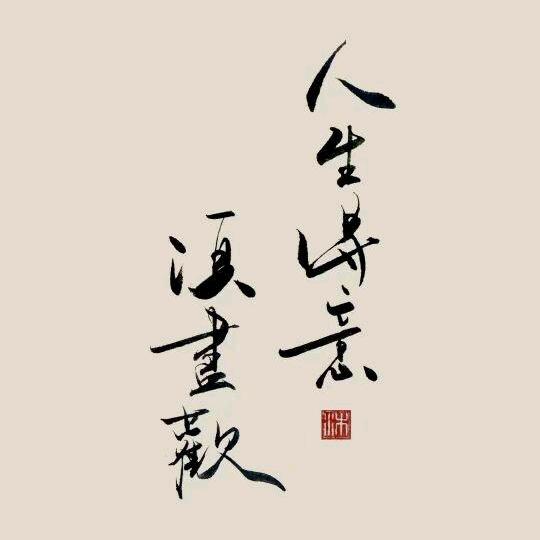 人生得意
須盡歡